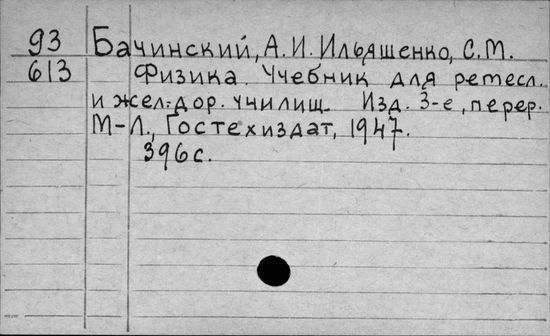 93 Бачинский, А.И. Ильяшенко, С.М.
613 Физика. Учебник для ремесл.
и жел.-дор. училищ. Изд. 3-е, перер.
М-Л., Гостехиздат, 1947.
396с.